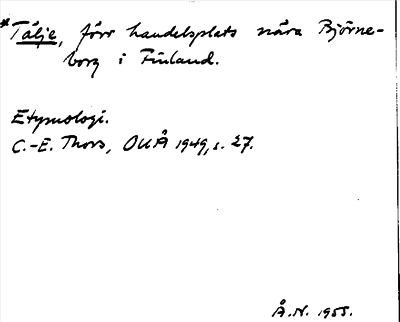 *Tälje, förr handelsplats nära Björne-
borg i Finland.
Etymologi.
C.-E. Thors, OUÅ 1949, s. 27.
Å.N. 1955.